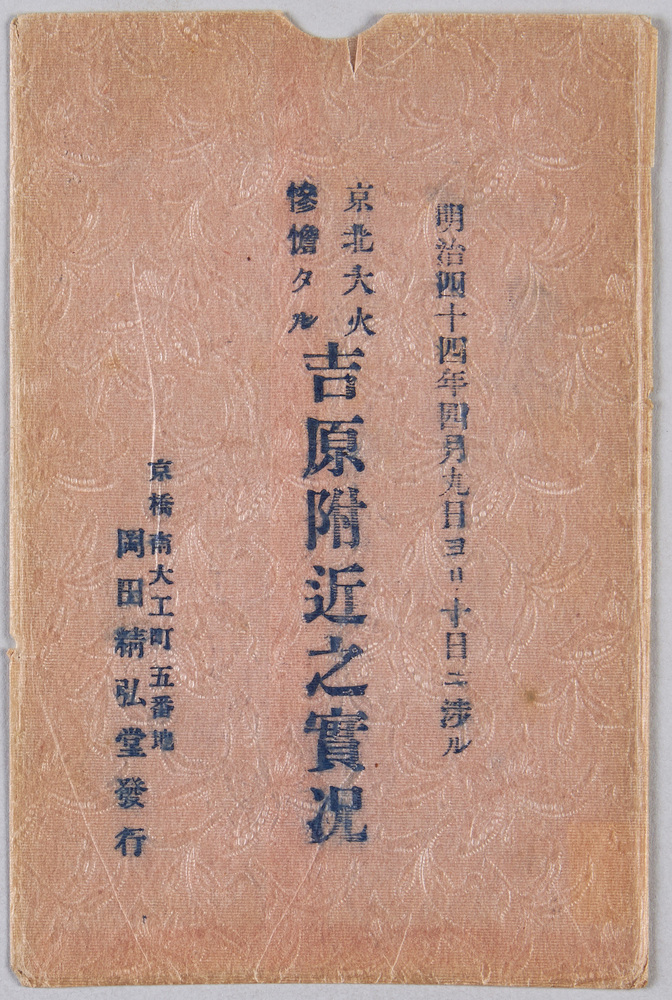 明治四十四年四月九日ヨリ十日ニ涉ル
京北大火
慘憺タル
吉原附近之實况
京橋南大工町五番地
岡田精弘堂發行